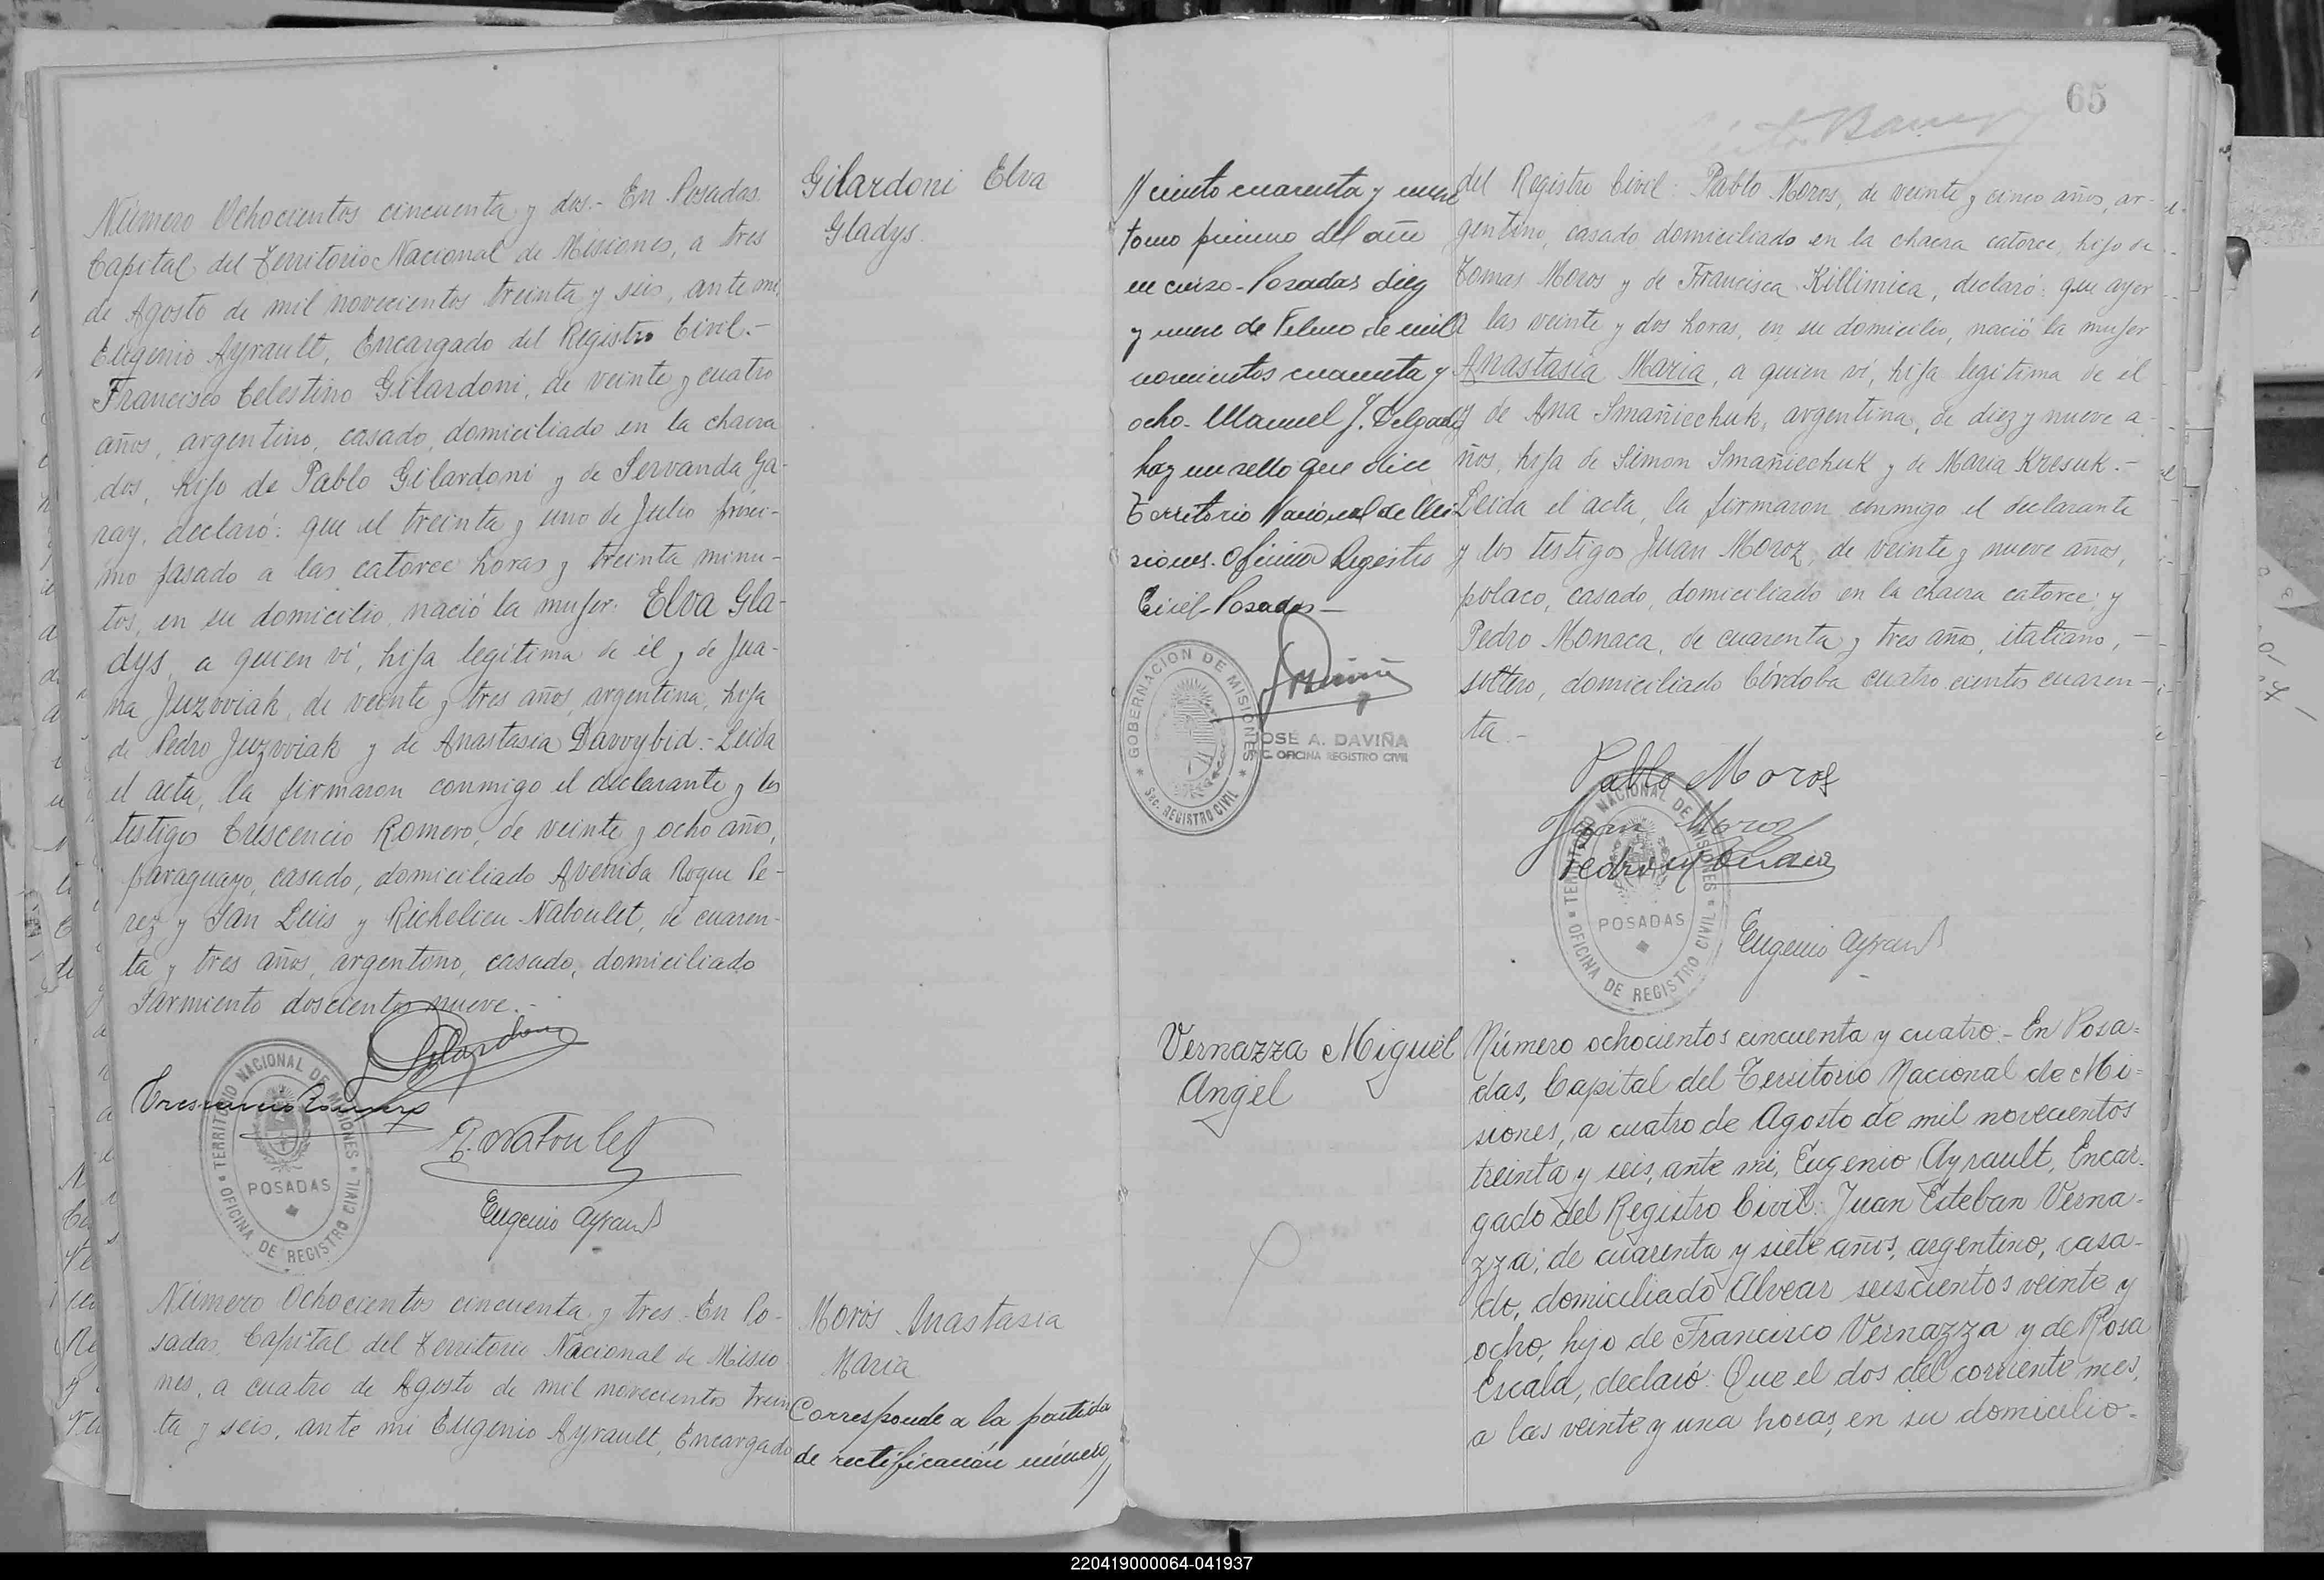 Número Ochocientos cincuenta y dos.- En Posadas
Capital del Territorio Nacional de Misiones, a tres
de Agosto de mil novecientos treinta y seis, ante mi,
Eugenio Ayrault, Encargado del Registro Civil.-
Francisco Celestino Gilardoni, de veinte y cuatro
años, argentino, casado, domiciliado en la chacra
dos, hijo de Pablo Gilardoni y de Servanda Ga-
ray, declaró: que el treinta y uno de Julio próxi-
mo pasado a las catorce horas y treinta minu-
tos, en su domicilio, nació la mujer: Elva Gla-
dys, a quien ví, hija legítima de él y de Jua-
na Juzwiak, de veinte y tres años, argentina, hija
de Pedro Juzwiak y de Anastasia Davvybid.- Leida
el acta, la firmaron conmigo el declarante y los
testigos Crescencio Romero, de veinte y ocho años,
paraguayo, casado, domiciliado Avenida Roque Pe-
rez y San Luis y Richelieu Naboulet, de cuaren-
ta y tres años, argentino, casado, domiciliado
Sarmiento doscientos nueve.-
Gilardoni
Crescencio Romero
R. Naboulet
Eugenio Ayrault
TERRITORIO NACIONAL DE MISIONES
POSADAS
OFICINA DE REGISTRO CIVIL
Gilardoni Elva
Gladys
Número Ochocientos cincuenta y tres. En Po-
sadas, Capital del Territorio Nacional de Misio
nes, a cuatro de Agosto de mil novecientos trein
ta y seis, ante mi Eugenio Ayrault, Encargado
Morós Anastasia
Maria
Corresponde a la partida
de rectificación número
65
// ciento cuarenta y nueve
tomo primero del año
en curso - Posadas diez
y nueve de Febrero de mil
novecientos cuarenta y
ocho - Manuel J. Delgado
hay un sello que dice
Territorio Nacional de Mi
siones. Oficina Registro
Civil - Posadas -
GOBERNACION DE MISIONES
Sec. REGISTRO CIVIL
JOSÉ A. DAVIÑA
C. OFICINA REGISTRO CIVIL
del Registro Civil: Pablo Moros, de veinte y cinco años, ar-
gentino, casado domiciliado en la chacra catorce, hijo de
Tomas Moros y de Francisca Killimica, declaró: que ayer
a las veinte y dos horas, en su domicilio, nació la mujer
Anastasia Maria, a quien ví, hija legítima de él
y de Ana Smañiechuk, argentina, de diez y nueve a-
ños, hija de Simon Smañiechuk y de Maria Kresuk.-
Leida el acta, la firmaron conmigo el declarante
y los testigos Juan Moroz, de veinte y nueve años,
polaco, casado, domiciliado en la chacra catorce; y
Pedro Monaca, de cuarenta y tres años, italiano,-
soltero, domiciliado Córdoba cuatro cientos cuaren-
ta.-
Pablo Moroz
Juan Moroz
Pedro Monaca
Eugenio Ayrault
TERRITORIO NACIONAL DE MISIONES
POSADAS
OFICINA DE REGISTRO CIVIL
Vernazza Miguel
Angel
Número ochocientos cincuenta y cuatro - En Posa=
das, Capital del Territorio Nacional de Mi=
siones, a cuatro de Agosto de mil novecientos
treinta y seis, ante mi, Eugenio Ayrault, Encar-
gado del Registro Civil: Juan Esteban Verna-
zza, de cuarenta y siete años, argentino, casa-
do, domiciliado Alvear seiscientos veinte y
ocho, hijo de Francisco Vernazza y de Rosa
Escala, declaró: Que el dos del corriente mes,
a las veinte y una horas, en su domicilio-
220419000064-041937